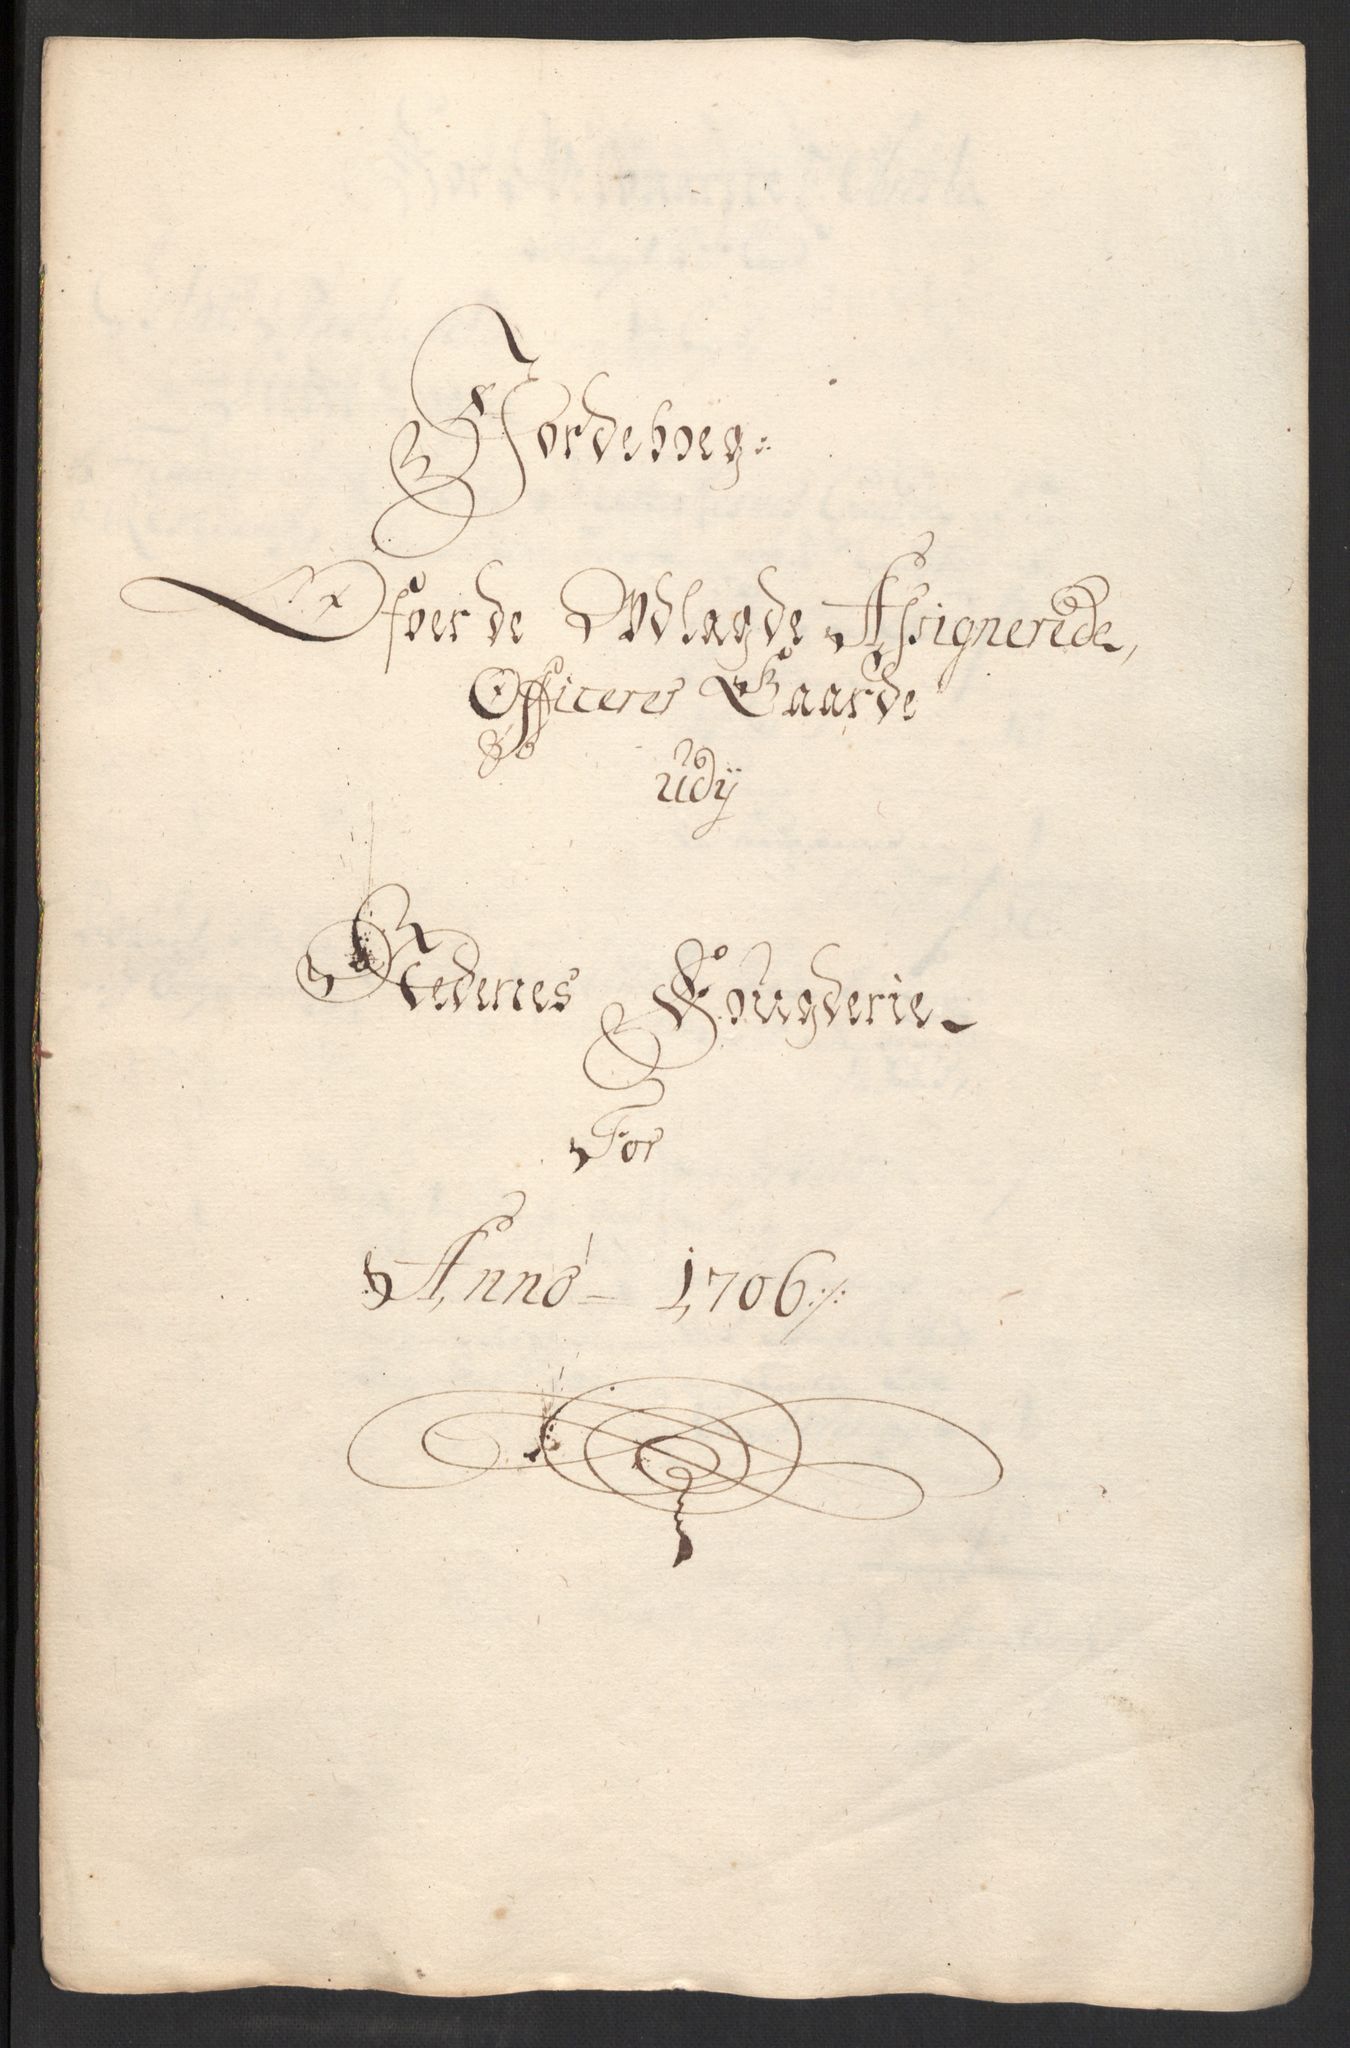 Jordeboeg
Ofver de Udlagde Assignerede,
Officeres Gaarde
udÿ
Nedenes Fougderie
For
Anno 1706